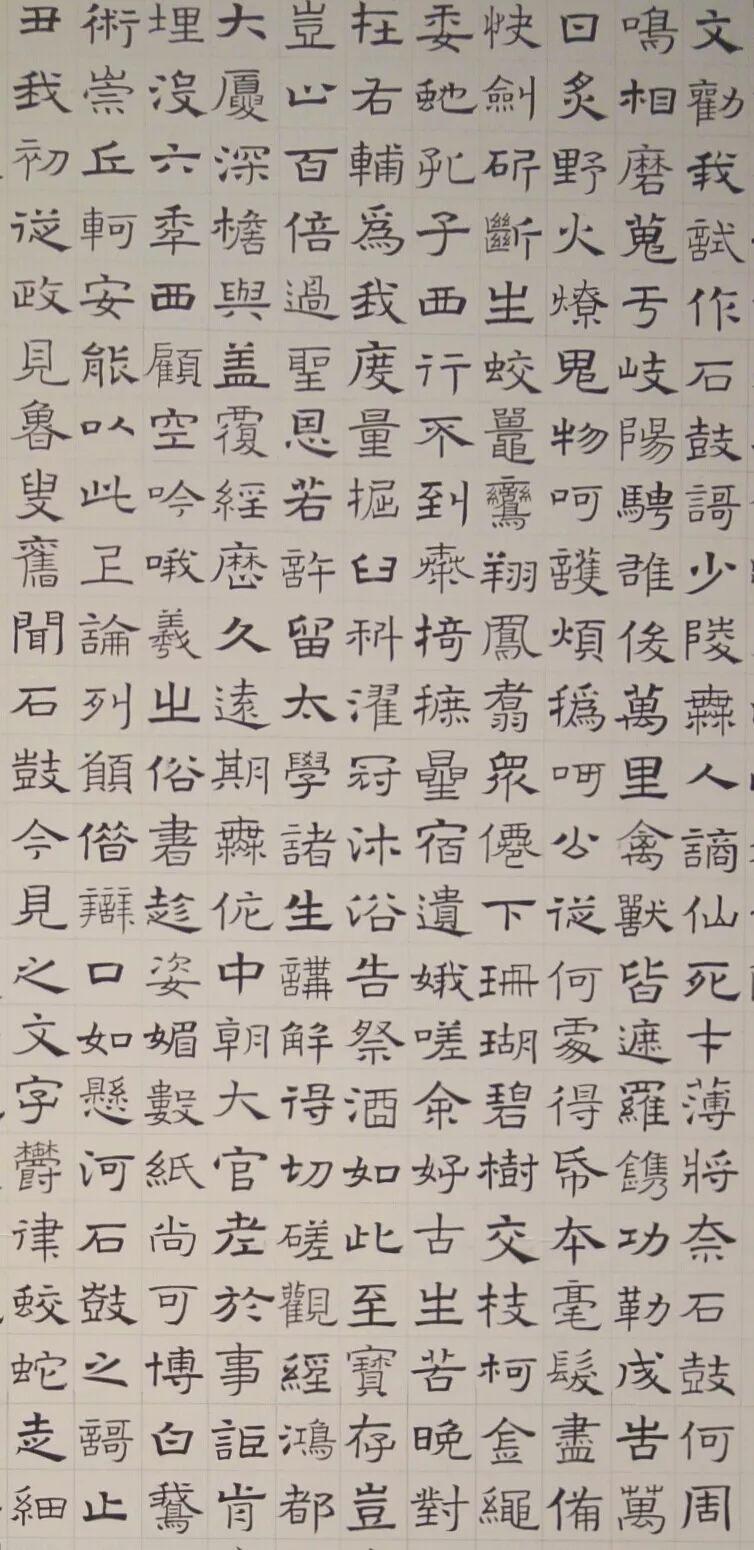 文勸我試作石鼓謌少陵無人謫仙死才薄將奈石鼓何周
鳴相磨蒐于岐陽騁雄俊萬里禽獸皆遮羅鐫功勒成告萬
日炙野火燎鬼物呵護煩撝呵公從何處得帋本毫髮盡備
快劍斫斷生蛟鼉鸞翔鳳翥眾僊下珊瑚碧樹交枝柯金繩
委虵孔子西行不到秦掎摭曐宿遺娥嗟余好古生苦晚對
在右輔為我度量掘臼科濯冠沐浴告祭酒如此至寶存豈
豈止百倍過聖恩若許留太學諸生講解得切磋觀經鴻都
大廈深檐與盖覆經歷久遠期無佗中朝大官老於事詎肯
埋沒六年西顧空吟哦羲之俗書趁姿媚數紙尚可博白鵞
術崇丘軻安能以此正論列願借辯口如懸河石鼓之謌止
丑我初從政見魯叟舊聞石鼓今見之文字鬱律蛟蛇走細